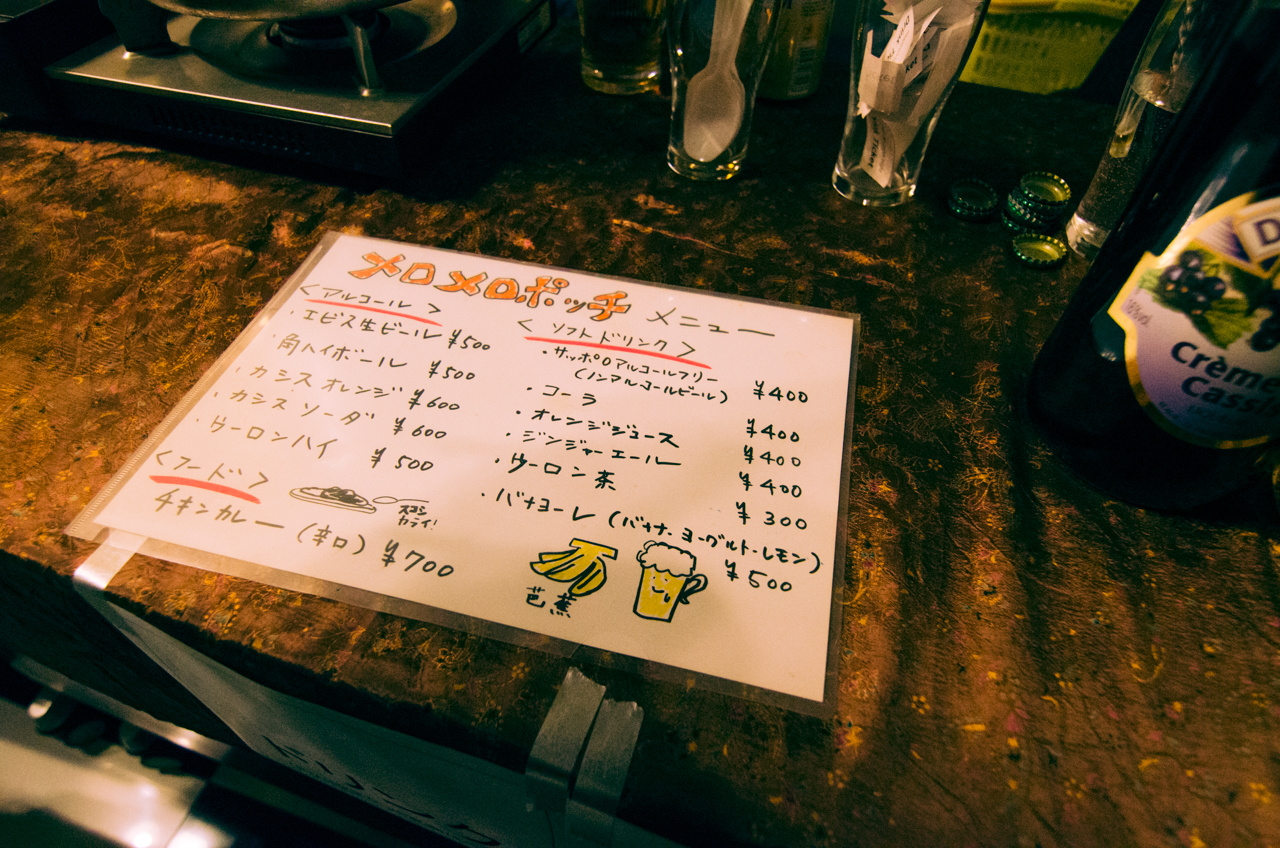 メロメロポッチ メニュー
<アルコール>
・エビス生ビール ¥500
・角ハイボール ¥500
・カシスオレンジ ¥600
・カシスソーダ ¥600
・ウーロンハイ ¥500
<フード>
チキンカレー(辛口) ¥700
スコシ
カライ!
<ソフトドリンク>
・サッポロアルコールフリー
(ノンアルコールビール) ¥400
・コーラ ¥400
・オレンジジュース ¥400
・ジンジャーエール ¥400
・ウーロン茶 ¥300
・バナヨーレ(バナナ・ヨーグルト・レモン)
¥500
芭蕉
Crème
Cassis